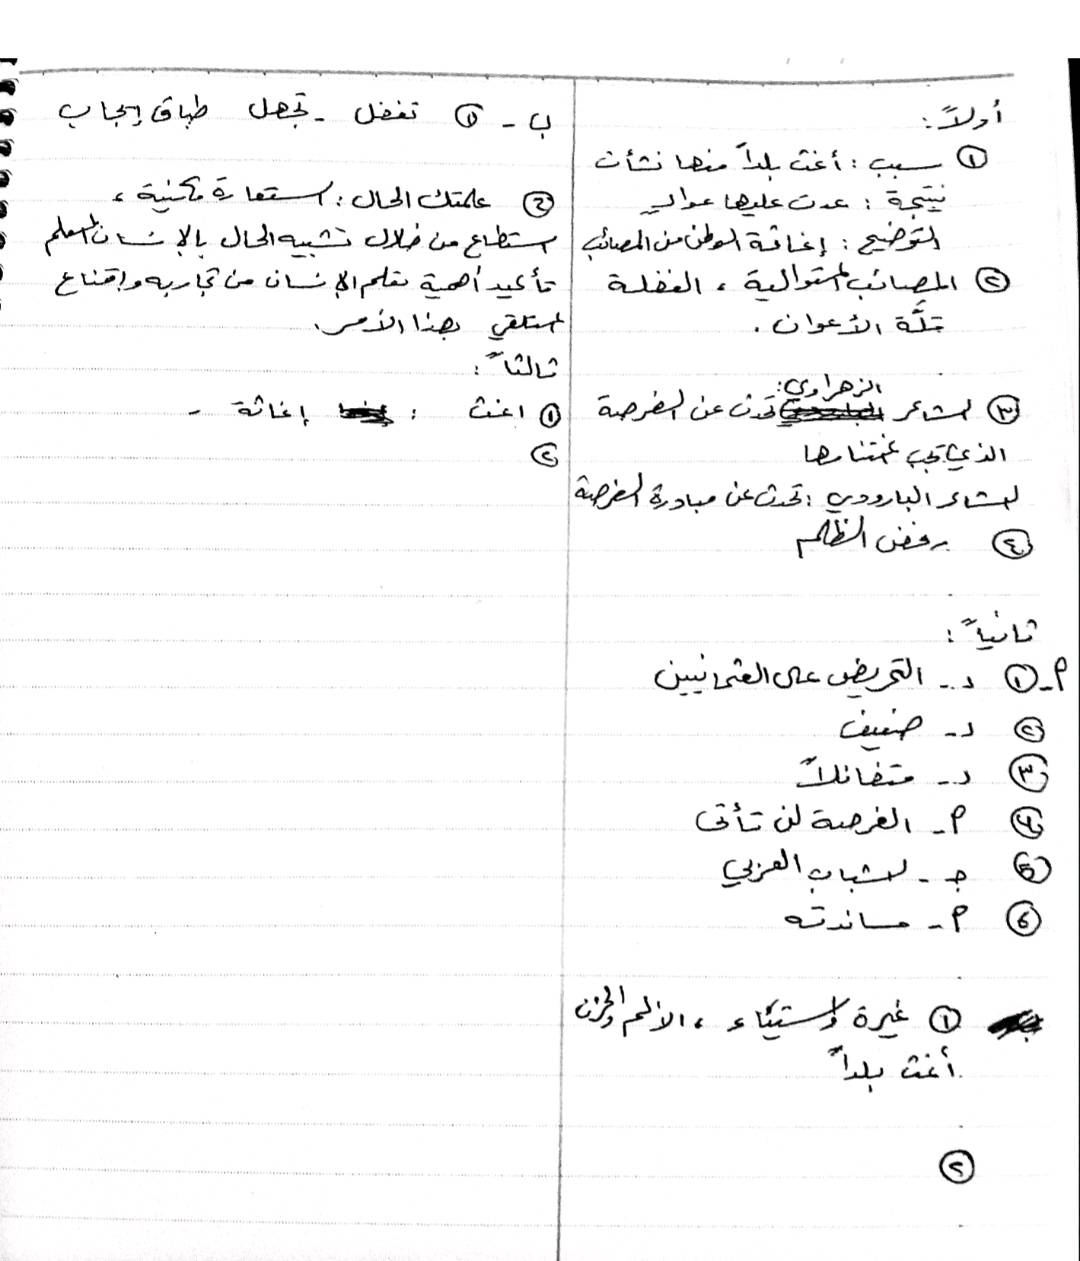 أولاً:
① سبب: أغث بلداً منها نشأت
نتيجة: عدت عليها عوادٍ
التوضيح: إغاثة الوطن من المصائب
② المصائب المتوالية، الغفلة
قلَّة الأعوان.
③ الشاعر الزهراوي: تحدث عن الفرصة
الذي يجب اغتنامها
الشاعر البارودي: تحدث عن مبادرة الفرصة
④ رفض الظلم
ثانياً:
أ- ① د- التحريض على العثمانيين
② د- ضعيف
③ د- متفائلاً
④ أ- الفرصة لن تأتي
⑤ ج- الشباب العربي
⑥ أ- مساندته
① غيرة واستياء، الألم والحزن
أغث بلداً
②
ب- ① تغفل - تجهل طباق إيجاب
② علمتك الحال: استعارة مكنية،
استطاع من خلال تشبيه الحال بالإنسان المعلم
تأكيد أهمية تعلم الإنسان من تجاربه وإقناع
المتلقي بهذا الأمر.
ثالثاً:
① اغث: إغاثة -
②